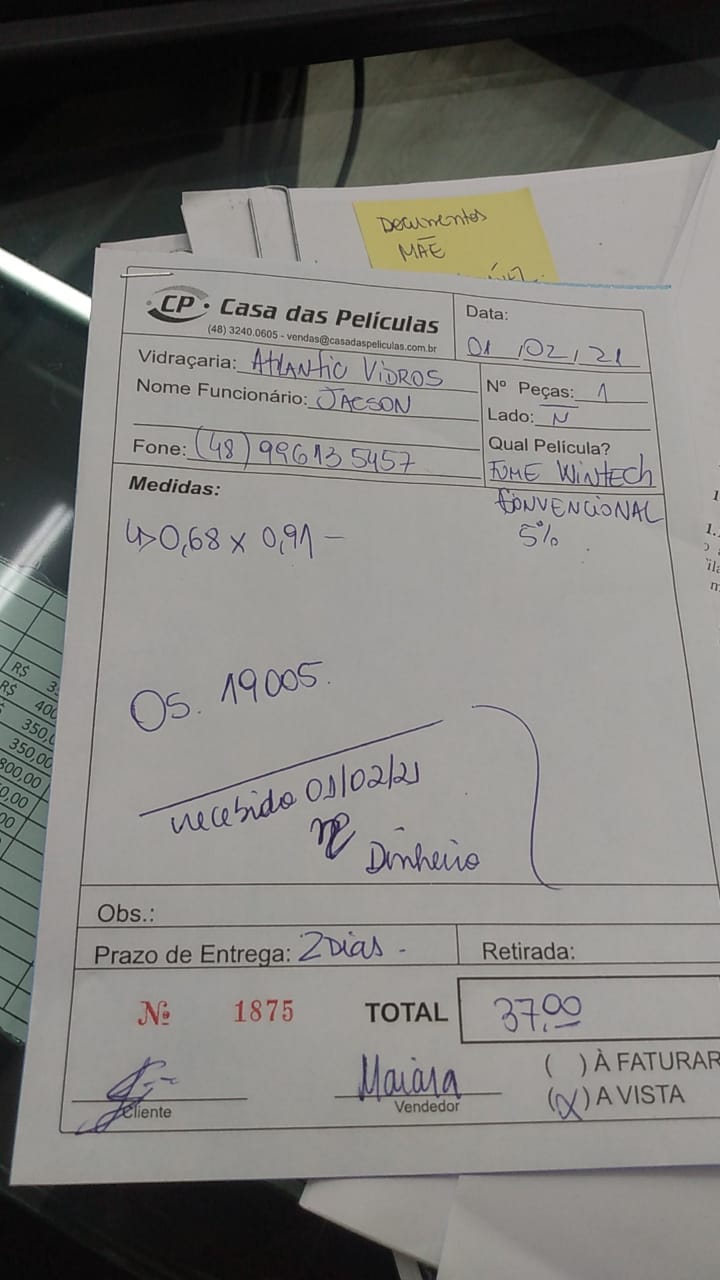 Documentos
MÃE
CP Casa das Películas
(48) 3240.0605 - vendas@casadaspeliculas.com.br
Data:
01/02/21
Vidraçaria: Atlantic Vidros
Nome Funcionário: Jacson
Nº Peças: 1
Lado: N
Fone: (48) 996135457
Qual Película?
Fume Wintech
Convencional
5%
Medidas:
↳ 0,68 x 0,91 -
OS. 19005.
recebido 01/02/21
Dinheiro
Obs.:
Prazo de Entrega: 2 Dias -
Retirada:
Nº 1875
TOTAL 37,00
( ) À FATURAR
(X) A VISTA
Cliente
Maiara
Vendedor
R$
R$ 400
350,0
350,00
800,00